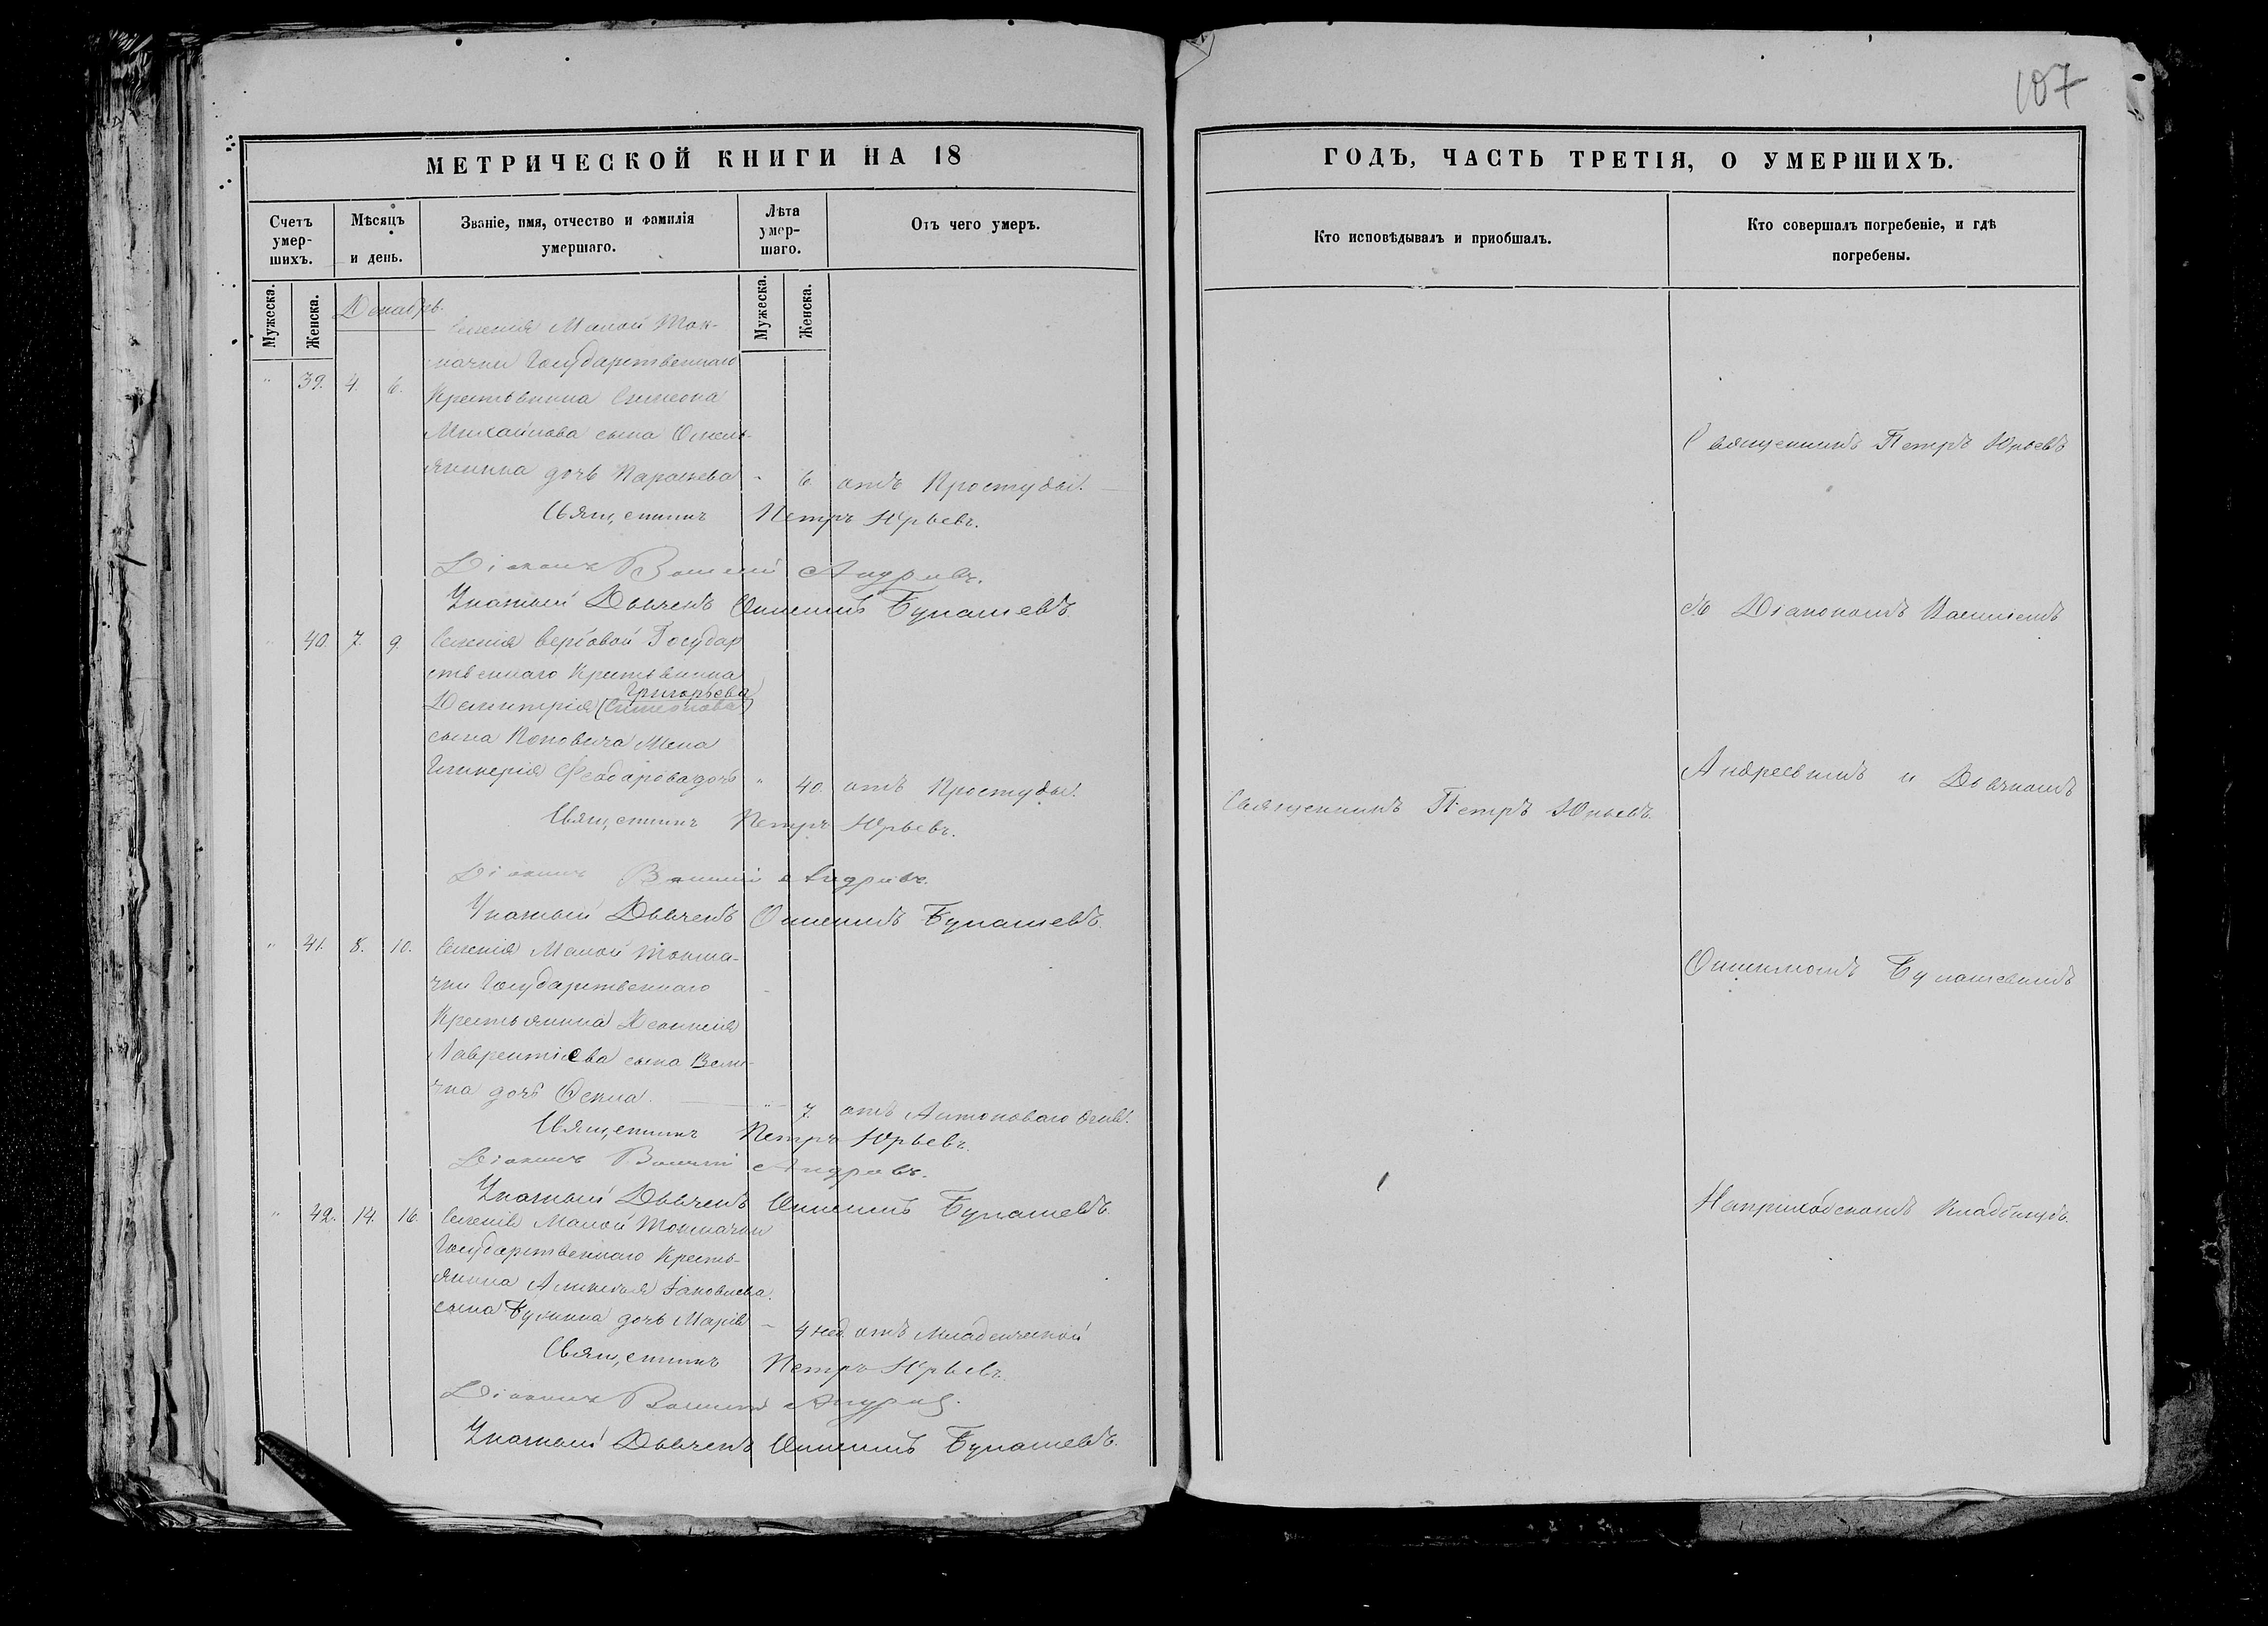 107
МЕТРИЧЕСКОЙ КНИГИ НА 18
Счетъ умер-шихъ.
Мѣсяцъ и день.
Званіе, имя, отчество и фамилія умершаго.
Лѣта умер-шаго.
Отъ чего умеръ.
Мужеска.
Женска.
Мужеска.
Женска.
Декабрь.
Селенія Малой Ток-
мачки Государственнаго
" 39. 4. 6. Крестьянина Симеона
Михайлова сына Омель-
янина дочь Параскева " 6 отъ Простуды.
Священникъ Петръ Юрьевъ.
Діаконъ Василій Андреевъ.
Указный Дьячекъ Онисимъ Булашевъ.
" 40. 7. 9. Селенія Вербовой Государ
ственнаго Крестьянина
Григорьева
Димитрія (Симеонова)
сына Поповича Жена
Гликерія Феодорова дочь " 40. отъ Простуды.
Священникъ Петръ Юрьевъ.
Діаконъ Василій Андреевъ.
Указный Дьячекъ Онисимъ Булашевъ.
" 41. 8. 10. Селенія Малой Токма-
чки Государственнаго
Крестьянина
Лаврентіева сына Вели-
чка дочь " 7. отъ Антоноваго Огня.
Священникъ Петръ Юрьевъ.
Діаконъ Василій Андреевъ.
Указный Дьячекъ Онисимъ Булашевъ.
" 42. 14. 16. Селенія Малой Токмачки
Государственнаго Кресть-
янина Яковлева
сына дочь Марія " 4 нед. отъ Младенческой
Священникъ Петръ Юрьевъ.
Діаконъ Василій Андреевъ.
Указный Дьячекъ Онисимъ Булашевъ.
ГОДЪ, ЧАСТЬ ТРЕТІЯ, О УМЕРШИХЪ.
Кто исповѣдывалъ и пріобщалъ.
Кто совершалъ погребеніе, и гдѣ погребены.
Священникъ Петръ Юрьевъ
съ Діакономъ Василіемъ
Андреевымъ и Дьячкомъ
Священникъ Петръ Юрьевъ.
Онисимомъ Булашевымъ
На приходскомъ Кладбищѣ.